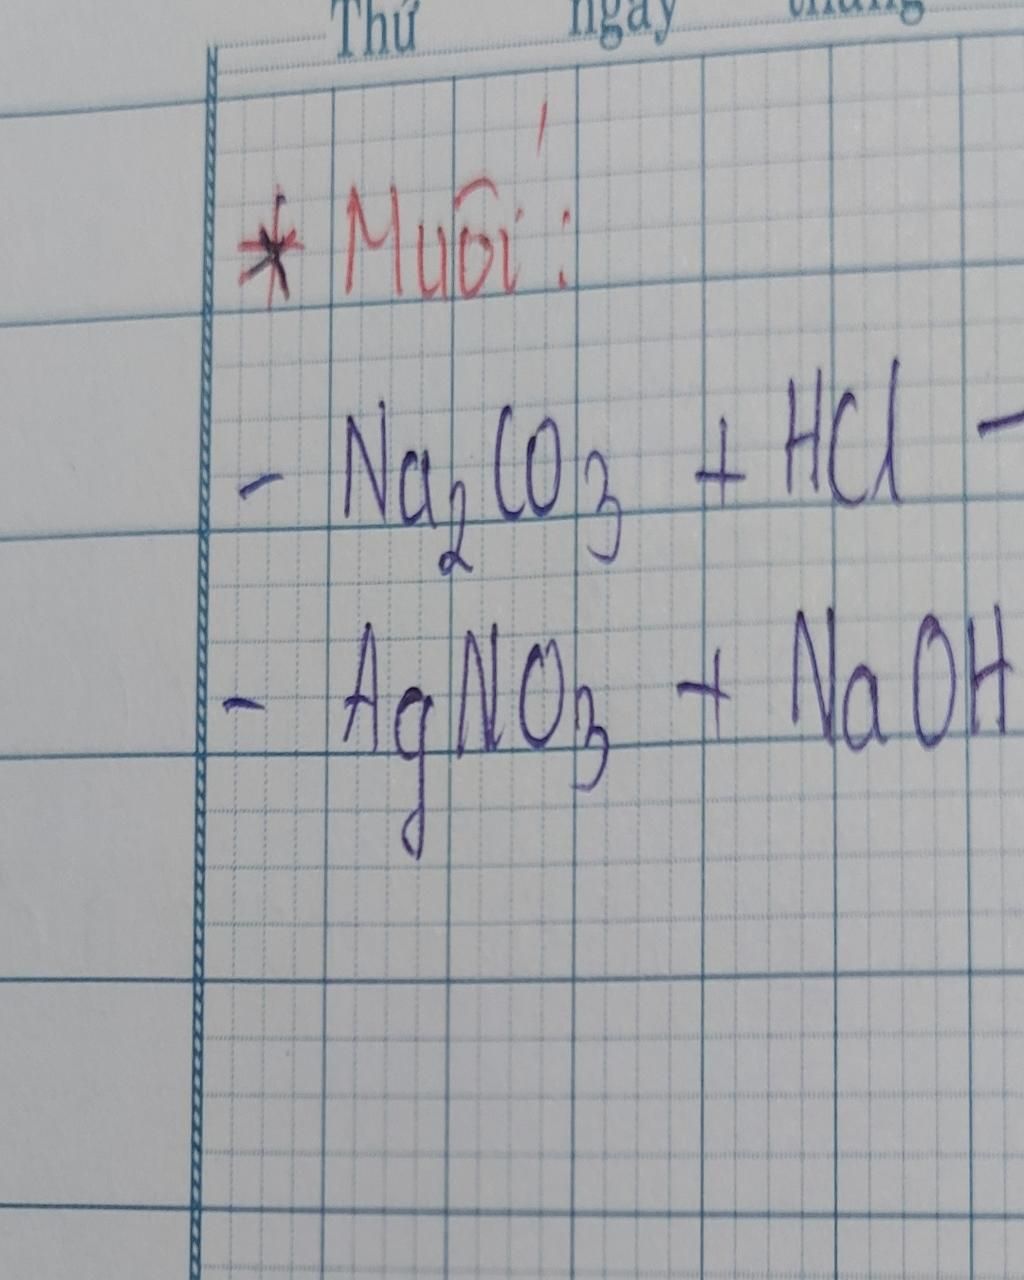 Thứ ngày tháng
* Muối:
- Na₂CO₃ + HCl -
- AgNO₃ + NaOH